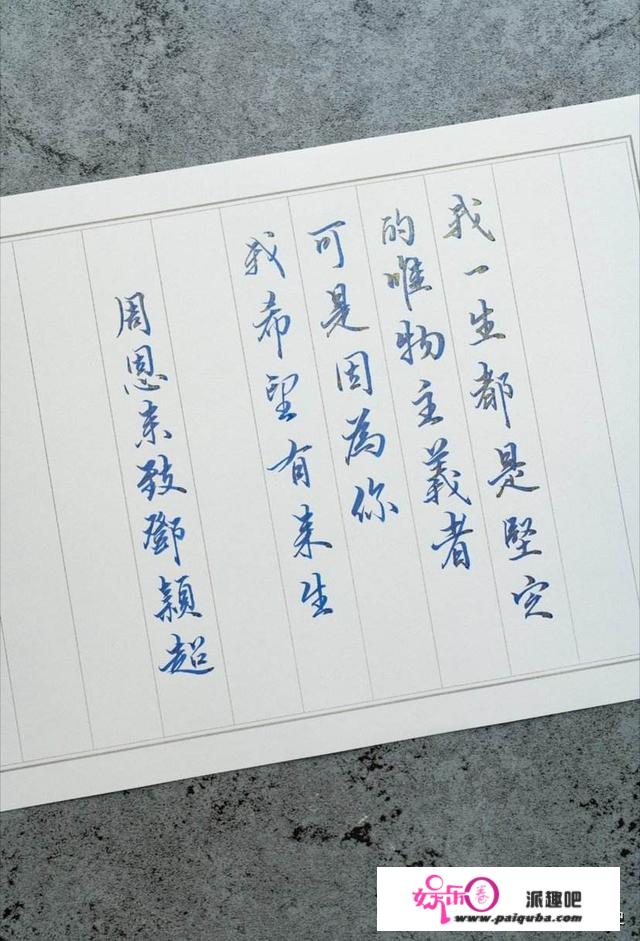 我一生都是堅定
的唯物主義者
可是因為你
我希望有来生
周恩来致鄧穎超
娱乐圈 派趣吧
www.paiquba.com